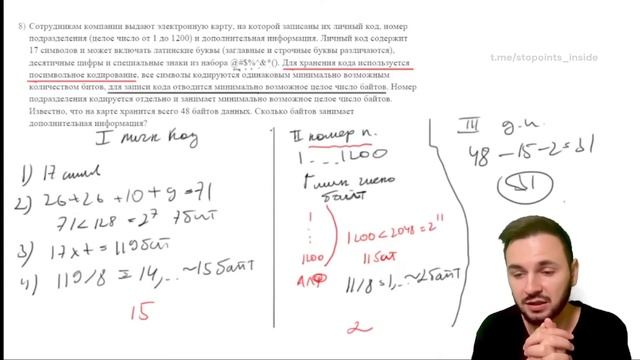 8) Сотрудникам компании выдают электронную карту, на которой записаны их личный код, номер
подразделения (целое число от 1 до 1200) и дополнительная информация. Личный код содержит
17 символов и может включать латинские буквы (заглавные и строчные буквы различаются),
десятичные цифры и специальные знаки из набора @#$%^&*(). Для хранения кода используется
посимвольное кодирование, все символы кодируются одинаковым минимально возможным
количеством битов, для записи кода отводится минимально возможное целое число байтов. Номер
подразделения кодируется отдельно и занимает минимально возможное целое число байтов.
Известно, что на карте хранится всего 48 байтов данных. Сколько байтов занимает
дополнительная информация?
t.me/stopoints_inside
I личн код
1) 17 симв
2) 26+26+10+9=71
71<128=2^7 7бит
3) 17x7=119бит
4) 119/8=14,... ~15байт
15
II номер п.
1...1200
мин число
байт
1
:
1200
1200<2048=2^11
11бит
11/8=1,...~2байт
2
III д.и.
48-15-2=31
31